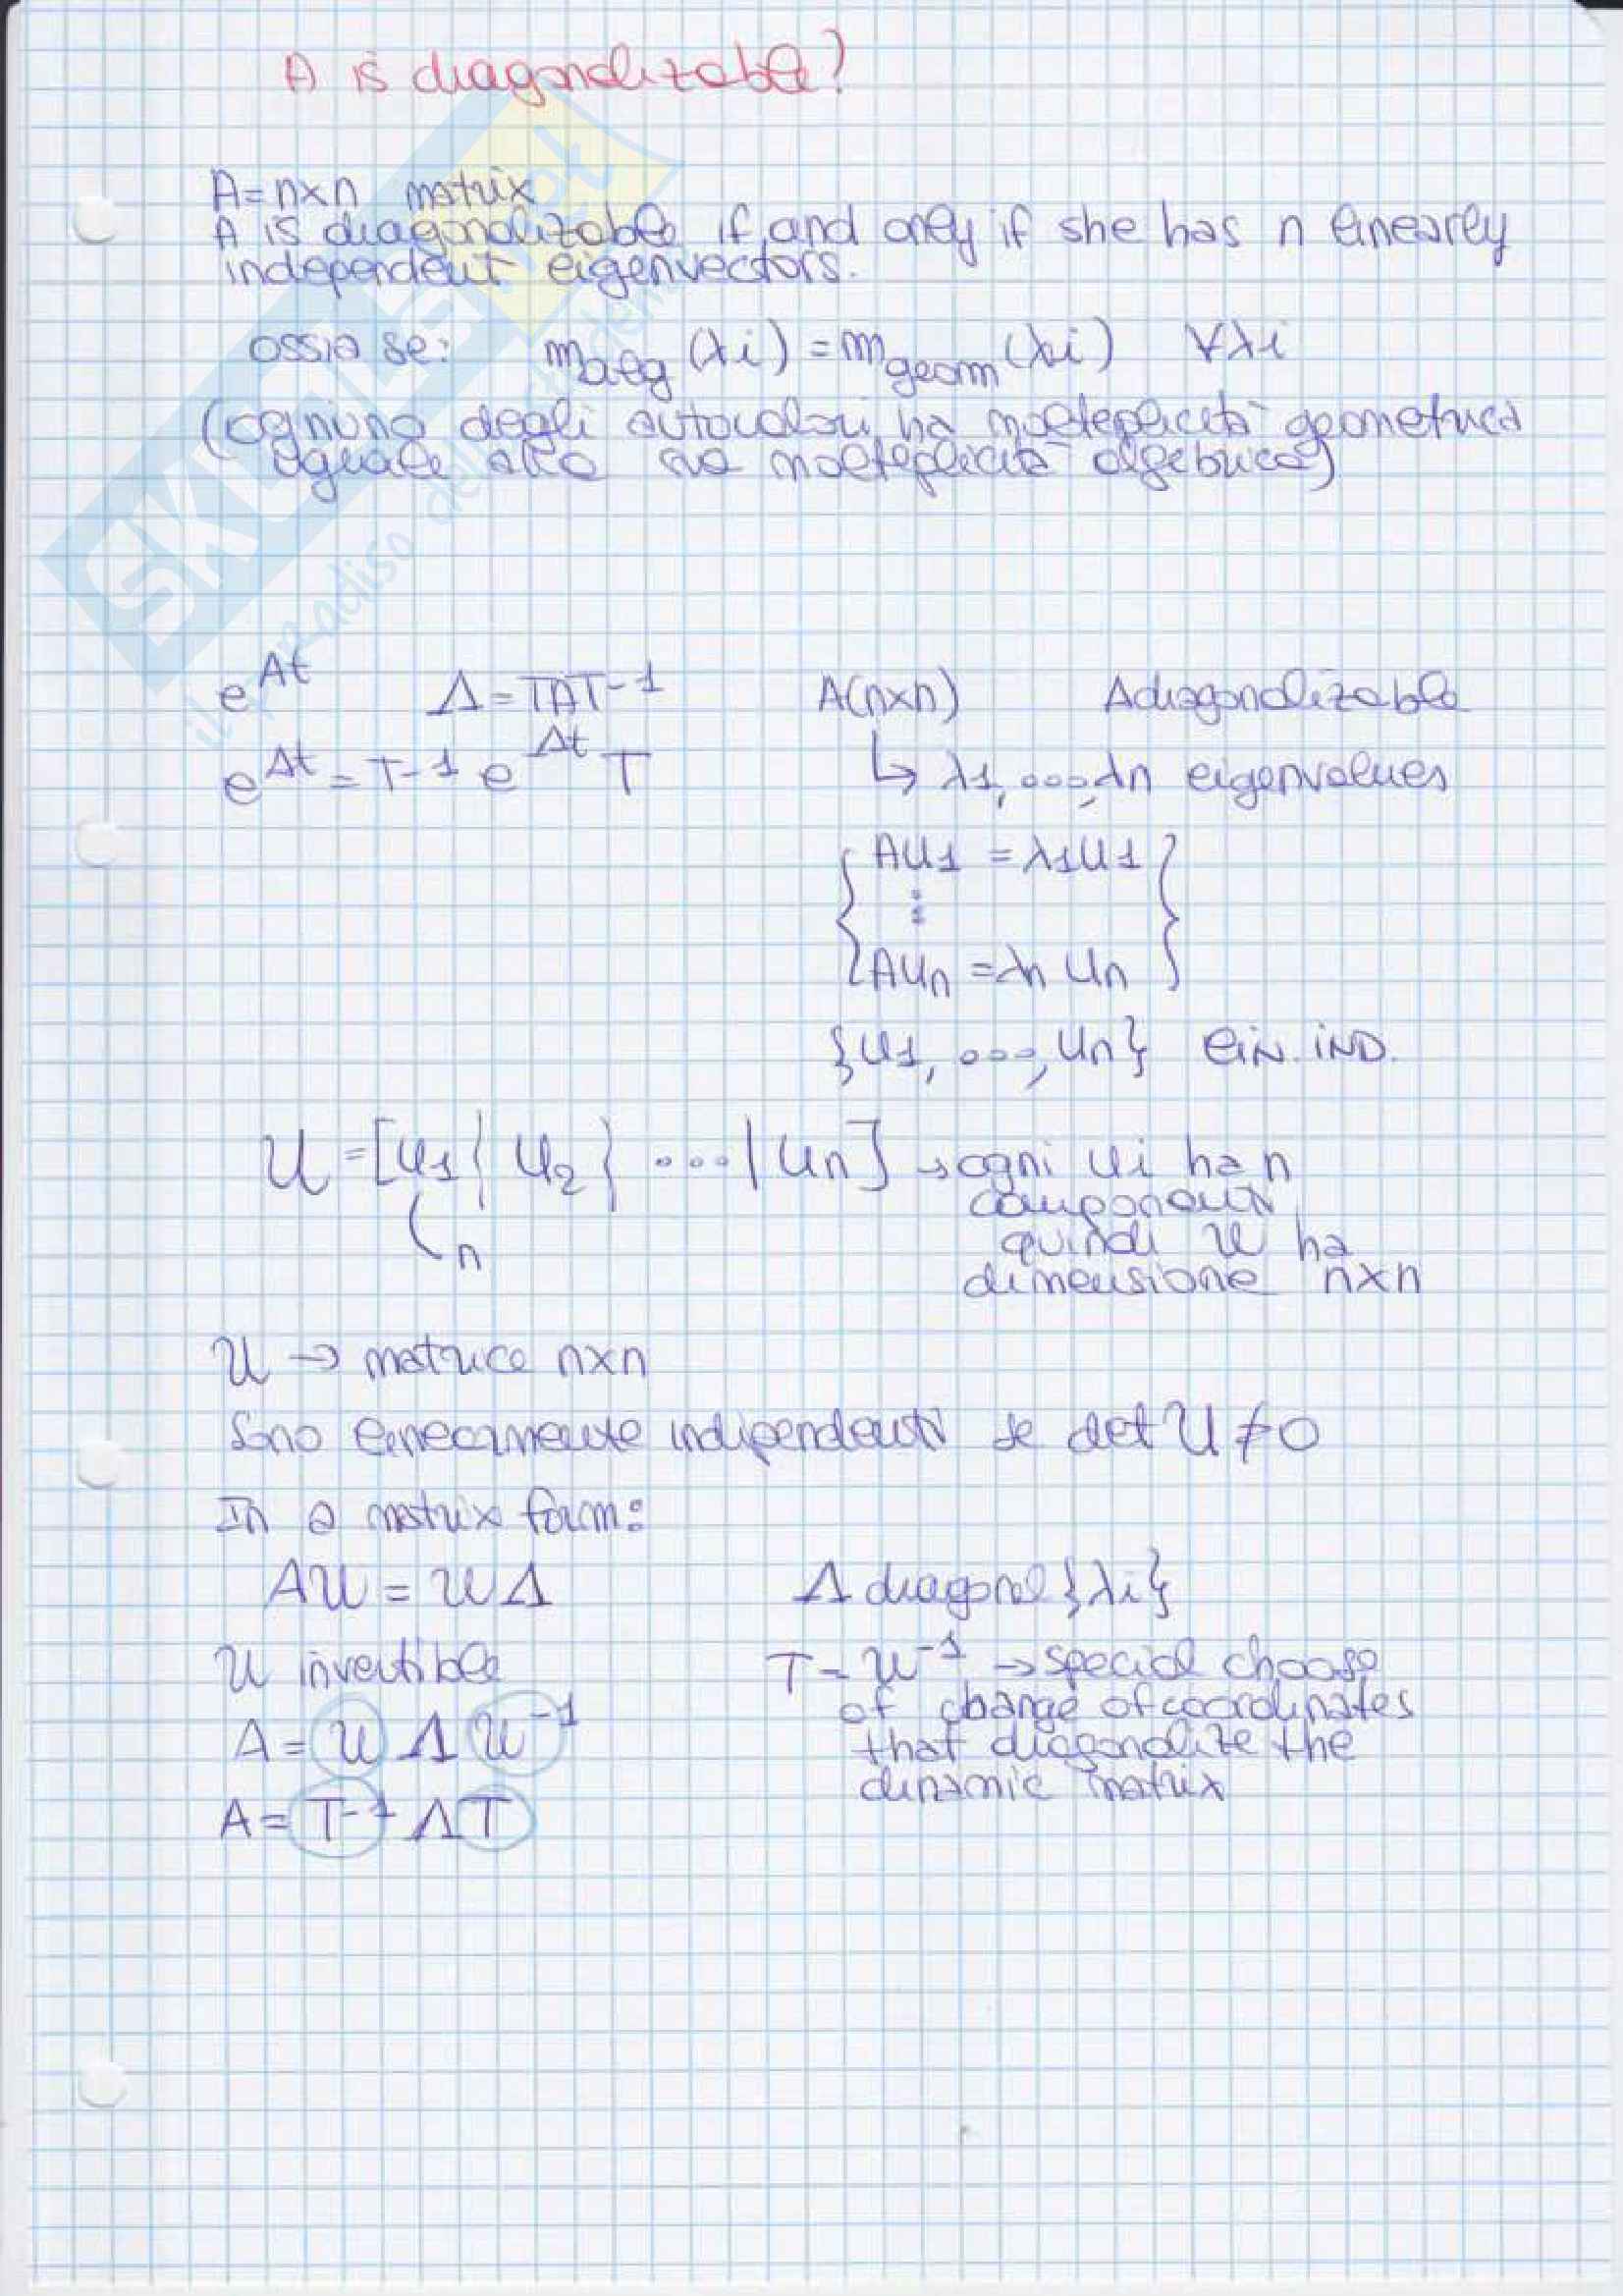 A is diagonalizable?
A = n×n matrix
A is diagonalizable if and only if she has n linearly
independent eigenvectors.
ossia se: m_alg (λi) = m_geom (λi) ∀λi
(ognuno degli autovalori ha molteplicità geometrica
uguale alla sua molteplicità algebrica)
SKUOLA.net
il paradiso dello
e^At Λ = TAT^-1 A(n×n) A diagonalizable
e^At = T^-1 e^Λt T ↳ λ1, ..., λn eigenvalues
{ Au1 = λ1u1 }
⋮
{ Aun = λn un }
{u1, ..., un} lin. ind.
U = [u1 | u2 | ... | un] → ogni ui ha n
n componenti
quindi U ha
dimensione n×n
U → matrice n×n
Sono linearmente indipendenti se det U ≠ 0
In a matrix form:
AU = UΛ Λ diagonal {λi}
U invertible T = U^-1 → special choose
of change of coordinates
A = U Λ U^-1 that diagonalize the
dinamic matrix
A = T^-1 Λ T